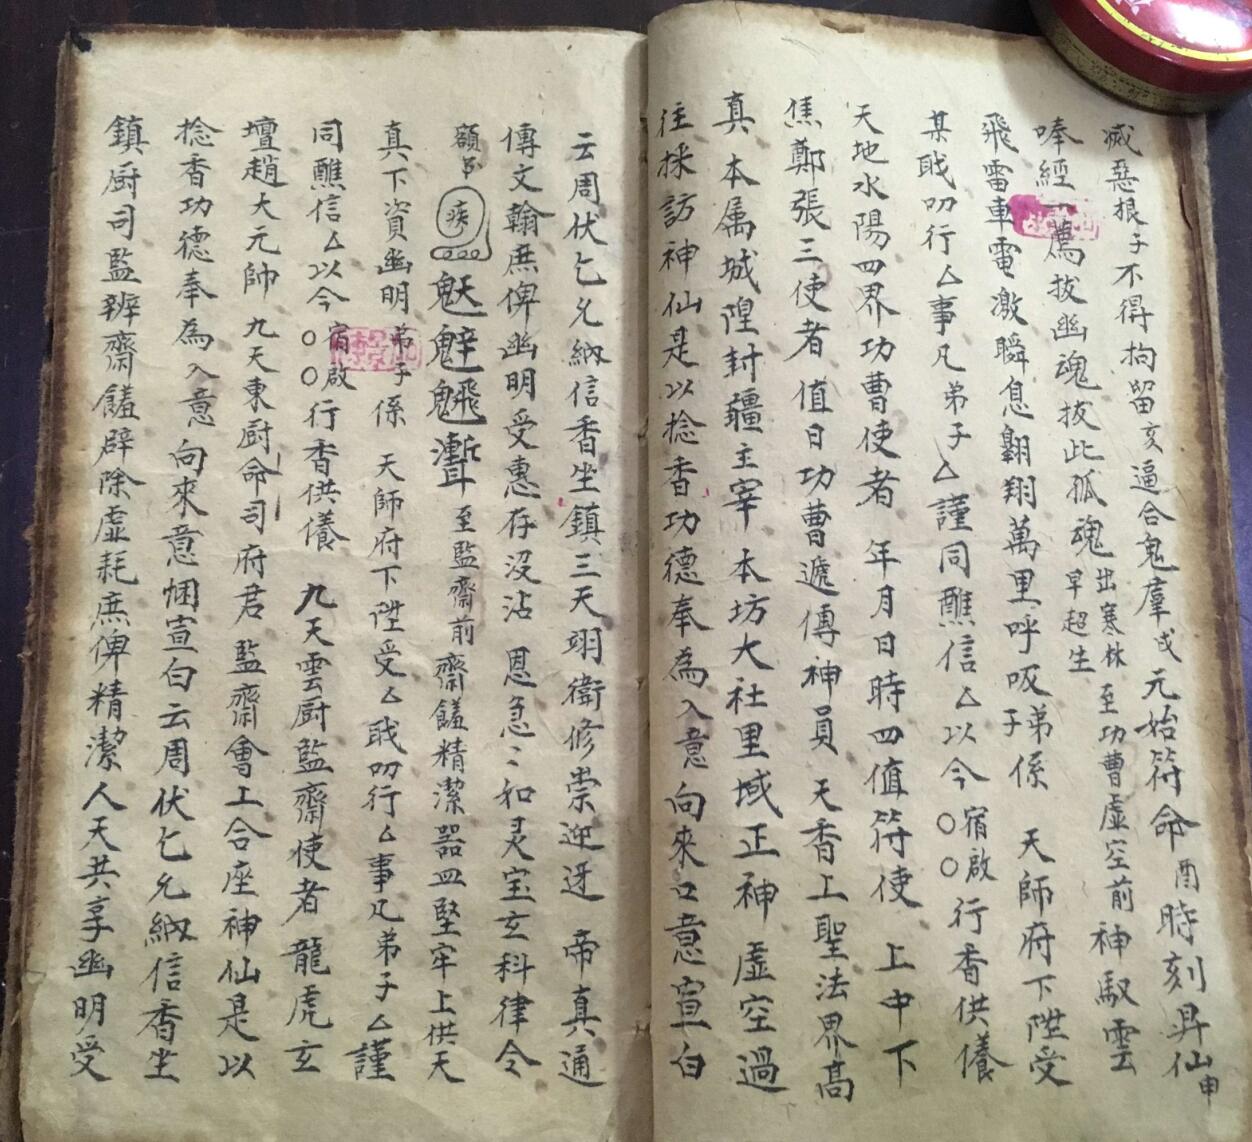 滅惡根子不得拘留亥逼合鬼羣戌元始符命酉時刻昇仙申
唪經一薦拔幽魂拔此孤魂出寒林早超生至功曹虛空前神馭雲
飛雷車電激瞬息翱翔萬里呼吸弟子係天師府下陞受
某戢叨行厶事凡弟子厶謹同醮信厶以今〇〇宿啟行香供儀
天地水陽四界功曹使者年月日時四值符使上中下
焦鄭張三使者值日功曹遞傳神員天香上聖法界高
真本属城隍封疆主宰本坊大社里域正神虛空過
往採訪神仙是以捻香功德奉為入意向來口意宣白
云周伏乞允納信香坐鎮三天翊衛修崇迎迓帝真通
傳文翰庶俾幽明受惠存没沾恩急〻如灵宝玄科律令
額吊疾魃魓魕𤅊至監齋前齋饈精潔器皿堅牢上供天
真下資幽明弟子係天師府下陞受厶戢叨行厶事凡弟子厶謹
同醮信厶以今〇〇宿啟行香供儀九天雲厨監齋使者龍虎玄
壇趙大元帥九天東厨命司府君監齋會上合座神仙是以
捻香功德奉為入意向來意悃宣白云周伏乞允納信香坐
鎮厨司監辨齋饈辟除虛耗庶俾精潔人天共享幽明受